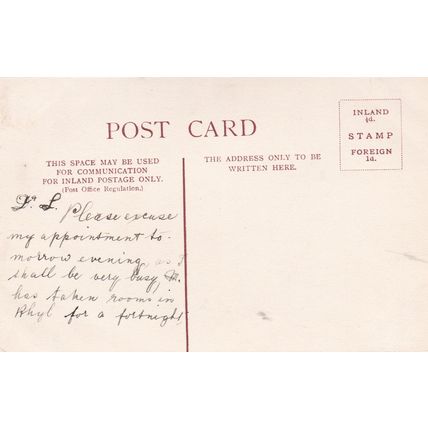 POST CARD
THIS SPACE MAY BE USED
FOR COMMUNICATION
FOR INLAND POSTAGE ONLY.
(Post Office Regulation.)
THE ADDRESS ONLY TO BE
WRITTEN HERE.
INLAND
½d.
STAMP
FOREIGN
1d.
L.
Please excuse
my appointment to-
morrow evening, as I
shall be very busy, M.
has taken rooms in
Rhyl for a fortnight